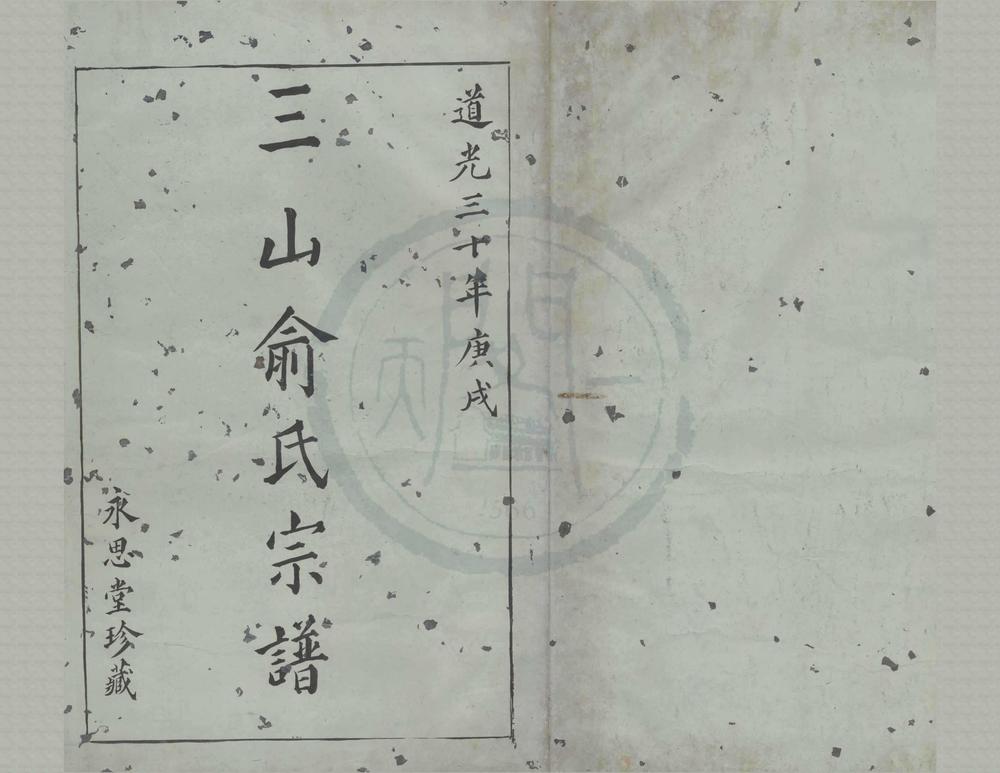 道光三十年庚戌
三山俞氏宗譜
永思堂珍藏